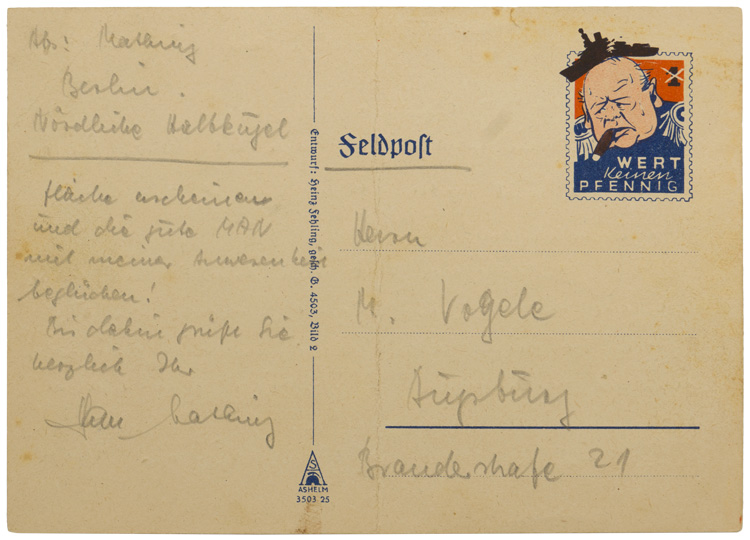 Abs: Mathing
Berlin.
Nördliche Halbkugel
fläche erscheinen
und die gute MAN
mit meiner Anwesenheit
beglücken!
Bis dahin grüßt Sie
herzlich Ihr
Entwurf: Heinz Fehling, gesch. D. 4503, Bild 2
AS
ASHELM
3503 25
Feldpost
1
WERT
keinen
PFENNIG
Herrn
M. Vogele
Augsburg
Branderstraße 21